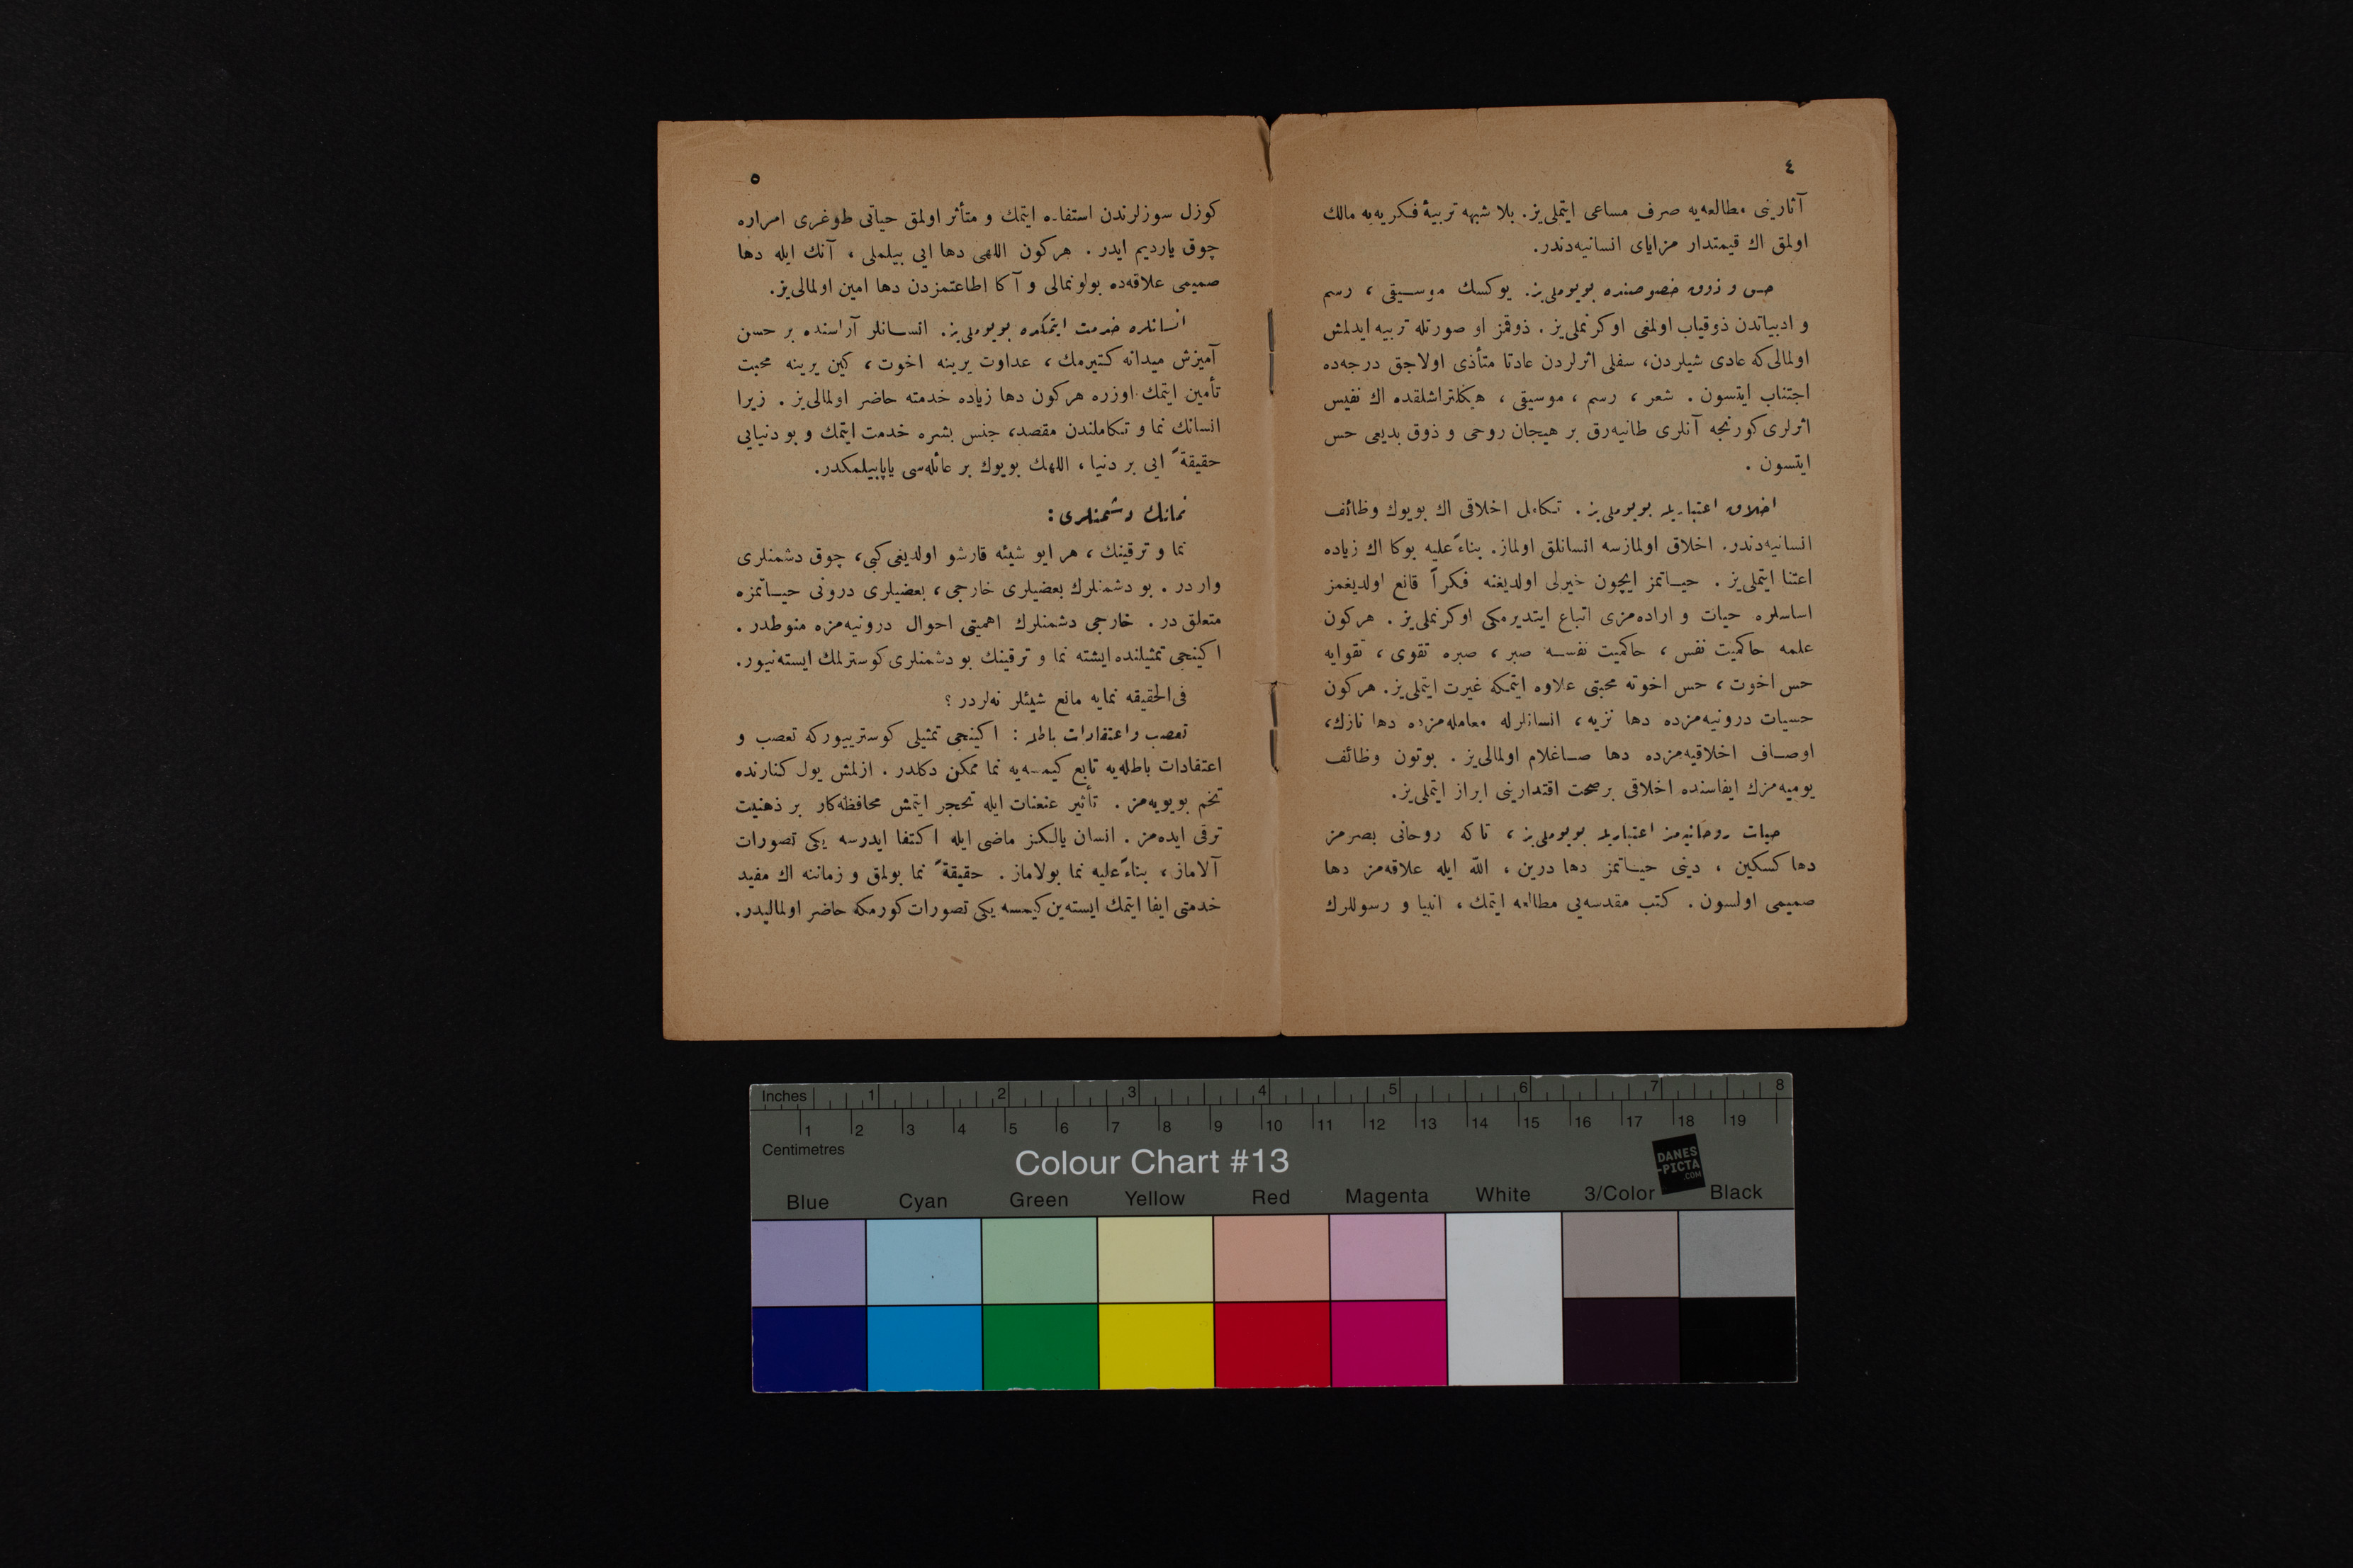 ٤
آثارينى مطالعه‌يه صرف مساعى ايتملى‌يز. بلا شبهه تربيهٔ فكريه‌يه مالك
اولمق اك قيمتدار مزاياى انسانيه‌دندر.
حس و ذوق خصوصنده بويوملى‌يز. يوكسك موسيقى ، رسم
و ادبياتدن ذوقياب اولمغى اوكرنملى‌يز . ذوقمز او صورتله تربيه ايدلمش
اولمالى‌كه عادى شيلردن، سفلى اثرلردن عادتا متأذى اولاجق درجه‌ده
اجتناب ايتسون . شعر ، رسم ، موسيقى ، هيكلتراشلقده اك نفيس
اثرلرى كورنجه آنلرى طانيه‌رق بر هيجان روحى و ذوق بديعى حس
ايتسون .
اخلاق اعتباريله بويوملى‌يز . تكامل اخلاقى اك بويوك وظائف
انسانيه‌دندر. اخلاق اولمازسه انسانلق اولماز. بناءً عليه بوكا اك زياده
اعتنا ايتملى‌يز . حياتمز ايچون خيرلى اولديغنه فكراً قانع اولديغمز
اساسلره حيات و اراده‌مزى اتباع ايتديرمكى اوكرنملى‌يز . هركون
علمه حاكميت نفس ، حاكميت نفسه صبر ، صبره تقوى ، تقوايه
حس اخوت ، حس اخوته محبتى علاوه ايتمكه غيرت ايتملى‌يز. هركون
حسيات درونيه‌مزده دها نزيه ، انسانلرله معامله‌مزده دها نازك،
اوصاف اخلاقيه‌مزده دها صاغلام اولمالى‌يز . بوتون وظائف
يوميه‌مزك ايفاسنده اخلاقى بر صحت اقتدارينى ابراز ايتملى‌يز.
حيات روحانيه‌مز اعتباريله بويوملى‌يز ، تا كه روحانى بصرمز
دها كسكين ، دينى حياتمز دها درين ، الله ايله علاقه‌مز دها
صميمى اولسون . كتب مقدسه‌يى مطالعه ايتمك ، انبيا و رسوللرك
٥
كوزل سوزلرندن استفاده ايتمك و متأثر اولمق حياتى طوغرى امراره
چوق يارديم ايدر . هركون اللهى دها ايى بيلملى ، آنك ايله دها
صميمى علاقه‌ده بولونمالى و آكا اطاعتمزدن دها امين اولمالى‌يز.
انسانلره خدمت ايتمكده بويوملى‌يز. انسانلر آراسنده بر حسن
آميزش ميدانه كتيرمك ، عداوت يرينه اخوت ، كين يرينه محبت
تأمين ايتمك اوزره هركون دها زياده خدمته حاضر اولمالى‌يز . زيرا
انسانك نما و تكاملندن مقصد، جنس بشره خدمت ايتمك و بو دنيايى
حقيقةً ايى بر دنيا ، اللهك بويوك بر عائله‌سى ياپابيلمكدر.
نمانك دشمنلرى :
نما و ترقينك ، هر ايو شيئه قارشو اولديغى كبى، چوق دشمنلرى
وار در . بو دشمنلرك بعضيلرى خارجى ، بعضيلرى درونى حياتمزه
متعلق در . خارجى دشمنلرك اهميتى احوال درونيه‌مزه منوطدر .
اكينجى تمثيلنده ايشته نما و ترقينك بو دشمنلرى كوسترلمك ايسته‌نيور.
فى الحقيقه نمايه مانع شيئلر نه‌لردر ؟
تعصب و اعتقادات باطله : اكينجى تمثيلى كوسترييوركه تعصب و
اعتقادات باطله‌يه تابع كيمسه‌يه نما ممكن دكلدر . ازلمش يول كنارنده
تخم بويويه‌مز . تأثير عنعنات ايله تحجر ايتمش محافظه‌كار بر ذهنيت
ترقى ايده‌مز . انسان يالكز ماضى ايله اكتفا ايدرسه يكى تصورات
آلاماز ، بناءً عليه نما بولاماز . حقيقةً نما بولمق و زماننه اك مفيد
خدمتى ايفا ايتمك ايسته‌ين كيمسه يكى تصورات كورمكه حاضر اولماليدر.
Inches 1 2 3 4 5 6 7 8
1 2 3 4 5 6 7 8 9 10 11 12 13 14 15 16 17 18 19
Centimetres
Colour Chart #13
DANES
-PICTA
.COM
Blue Cyan Green Yellow Red Magenta White 3/Color Black